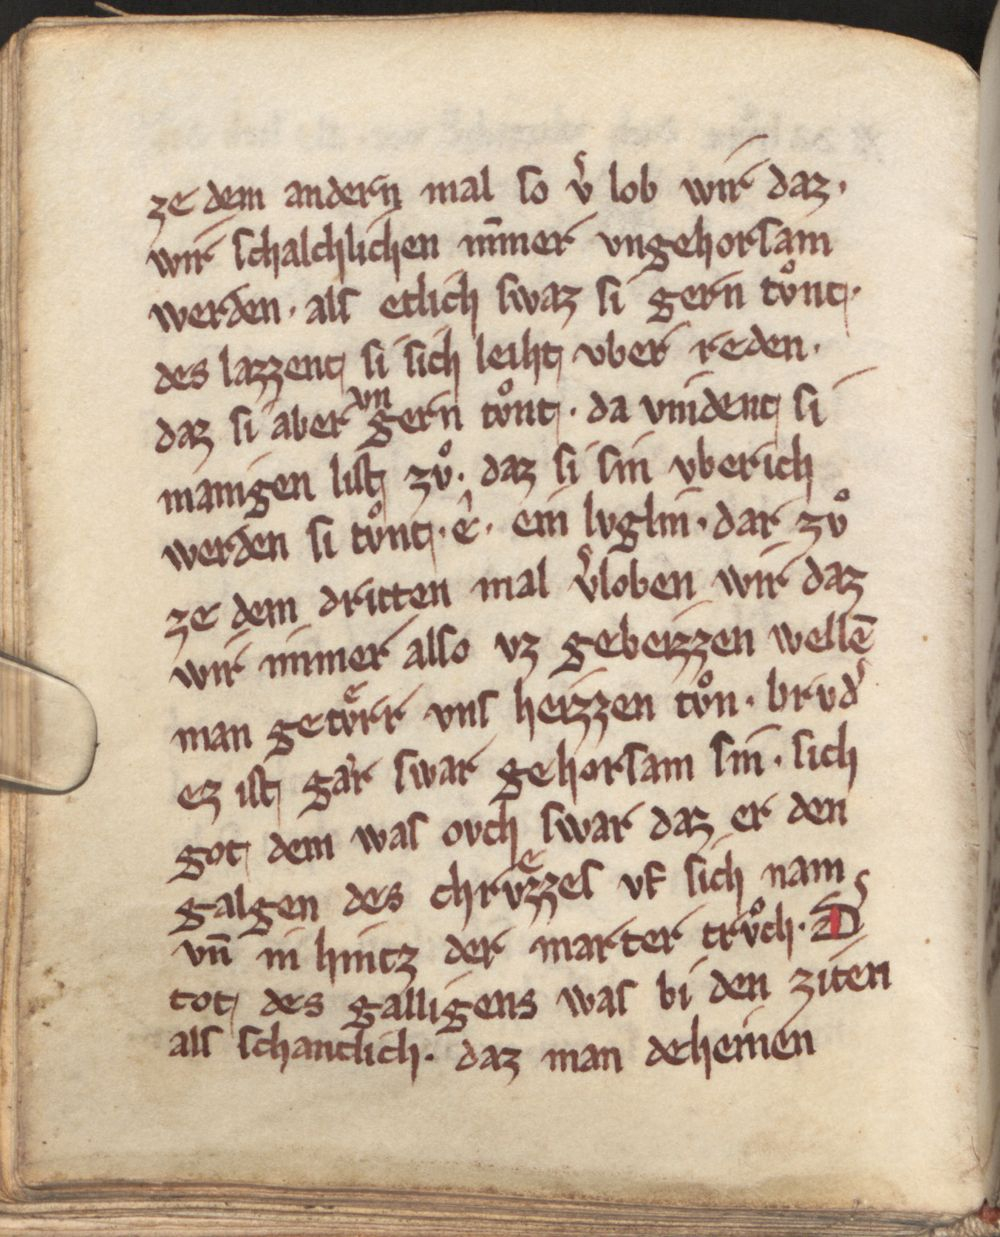 ze dem andern mal so v̾ lob wir daz·
wir schalchlichen nīmer vngehorsam
werden· als etlich swaz si gern tvͦnt·
des lazzent si sich leiht vber reden·
daz si aber vn gern tvͦnt· da vindent si
manigen list zvͦ· daz si sin vberich
werden si tvͦnt· e̾· ein lvglin· dar zvͦ
ze dem dritten mal v̾loben wir daz
wir nimmer also vz gebeizzen wellē
man getvͤrr vns heizzen tvͦn· brvd̾
ez ist gar swar gehorsam sin· sich
got dem was ovch swar daz er den
galgen des chrvͤzzes vf sich nam
vn̄ in hintz der marter trvͦch· D̾
tot des galligens was bi den ziten
als schantlich· daz man deheinen